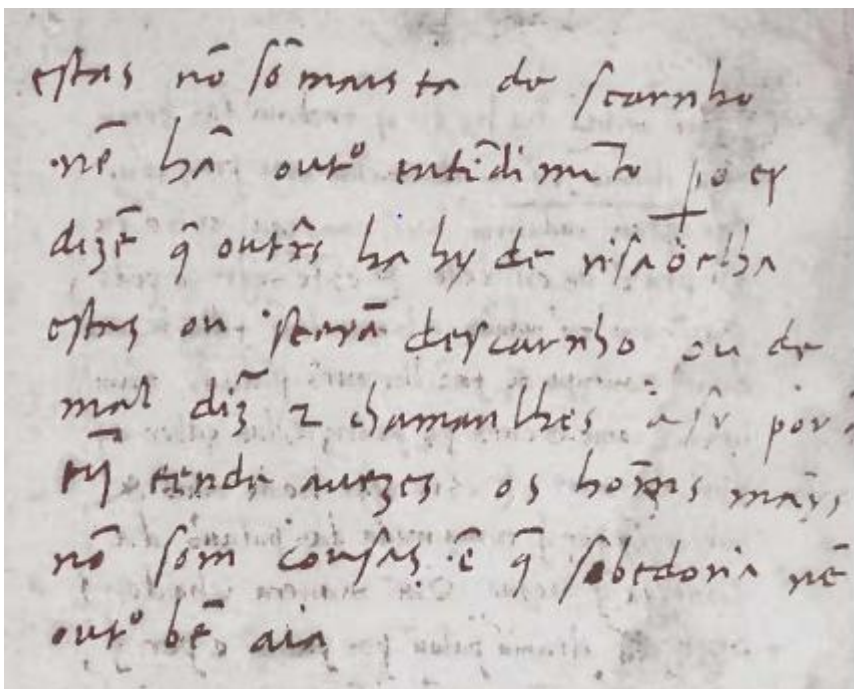 estas nõ sõ mais ca de scarnho
nẽ hã outº entẽdimẽto po er
dizẽ q̃ outr̃s ha hy de risaoelha
estas ou seerã descarnho ou de
mal diz̃ ⁊ chamanlhes por
rij̃ ende auezes os hom̃es mays
nõ som cousas ẽ q̃ sabedoria nẽ
outº bẽ aia